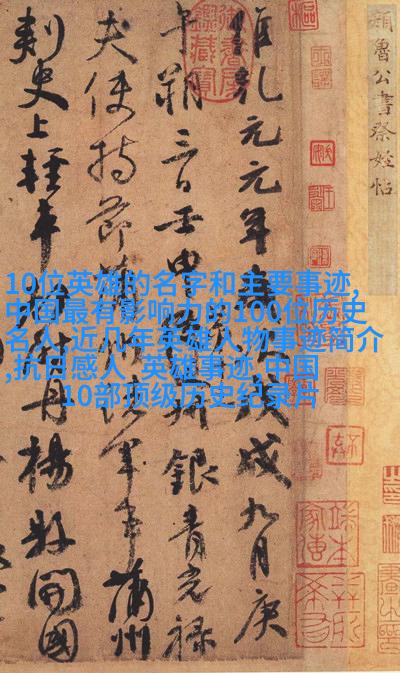 顏魯公書祭姪帖
維乾元元年歲次戊戌九月庚
午朔三日壬申銀青光祿
夫使持節蒲州諸軍事蒲州
刺史上輕車都尉丹楊縣開國
10位英雄的名字和主要事迹,
中国最有影响力的100位历史
名人,近几年英雄人物事迹简介
,抗日感人 英雄事迹,中国
10部顶级历史纪录片